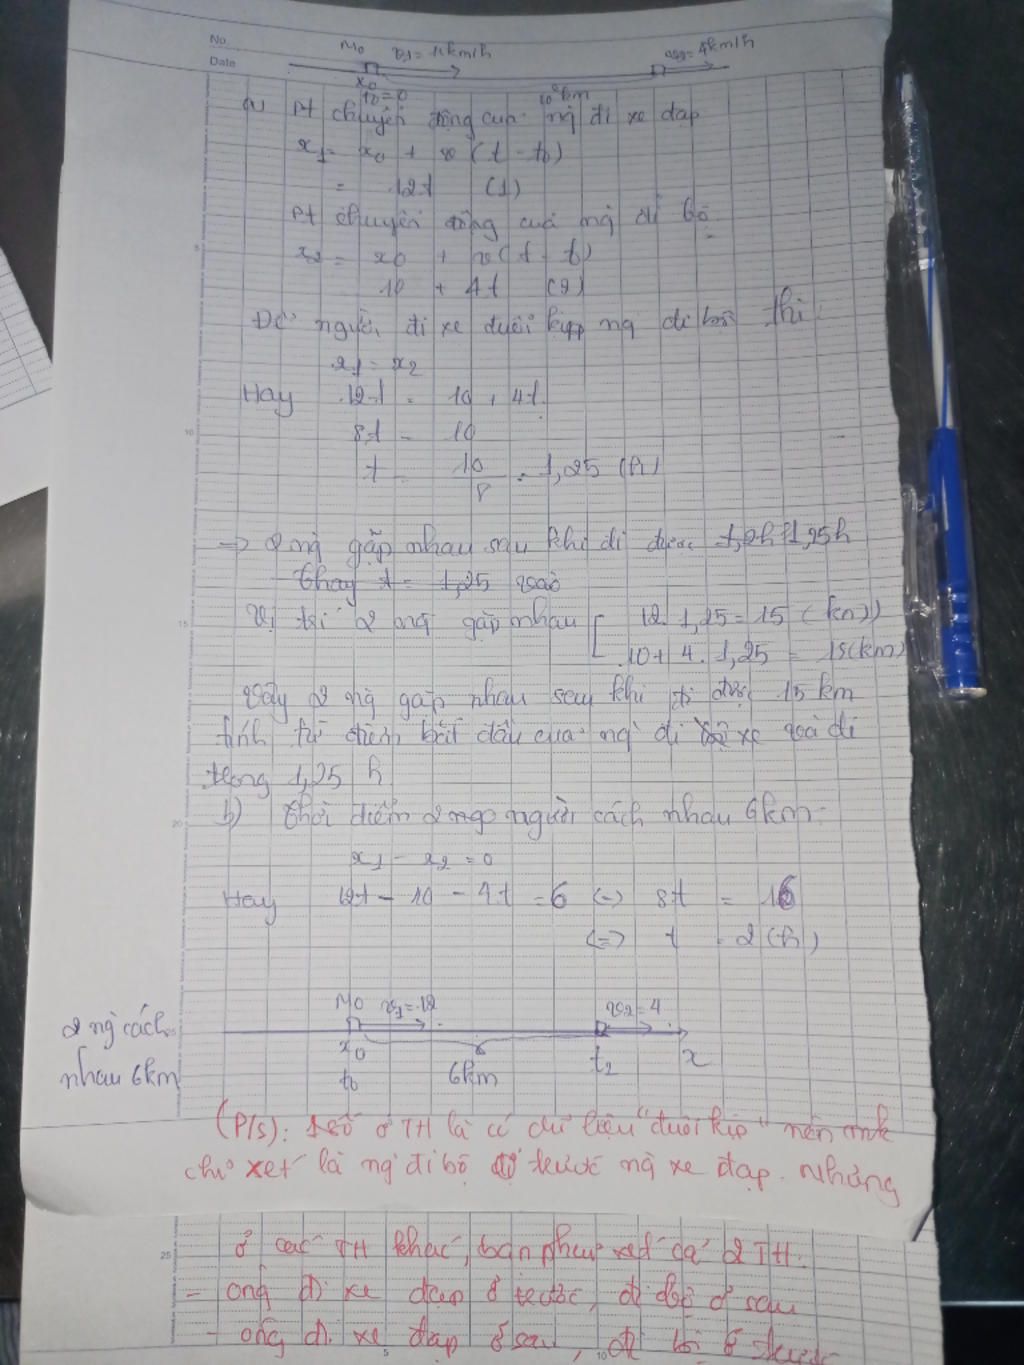 No.
Date
M0 v1 = 12km/h v2 = 4km/h
x0
t0 = 0 10km
a) Pt chuyển động của ng đi xe đạp
x1 = x0 + v (t - t0)
= 12t (1)
Pt chuyển động của ng đi bộ
x2 = x0 + v(t - t0)
10 + 4t (2)
Để người đi xe đuổi kịp ng đi bộ thì
x1 = x2
Hay 12t = 10 + 4t
8t = 10
t = 10/8 = 1,25 (h)
=> 2 ng gặp nhau sau khi đi được 1,25h
thay t = 1,25 vào
Vị trí 2 ng gặp nhau [ 12. 1,25 = 15 (km)
10 + 4. 1,25 = 15(km)
Vậy 2 ng gặp nhau sau khi đi được 15 km
tính từ điểm bắt đầu của ng đi xe và đi
trong 1,25 h
b) Thời điểm 2 người cách nhau 6km:
x1 - x2 = 0
Hay 12t - 10 - 4t = 6 <=> 8t = 16
<=> t = 2 (h)
M0 v1 = 12 v2 = 4
2 ng cách
x0 t2 x
nhau 6km t0 6km
(P/s): ở TH là có dữ liệu "đuổi kịp" nên mk
chỉ xét là ng đi bộ trước ng xe đạp. Nhưng
ở các TH khác, bạn phải xét cả 2 TH:
- ông đi xe đạp ở trước, đi bộ ở sau
- ông đi xe đạp ở sau, đi bộ ở trước
5
10
15
20
25
5 10